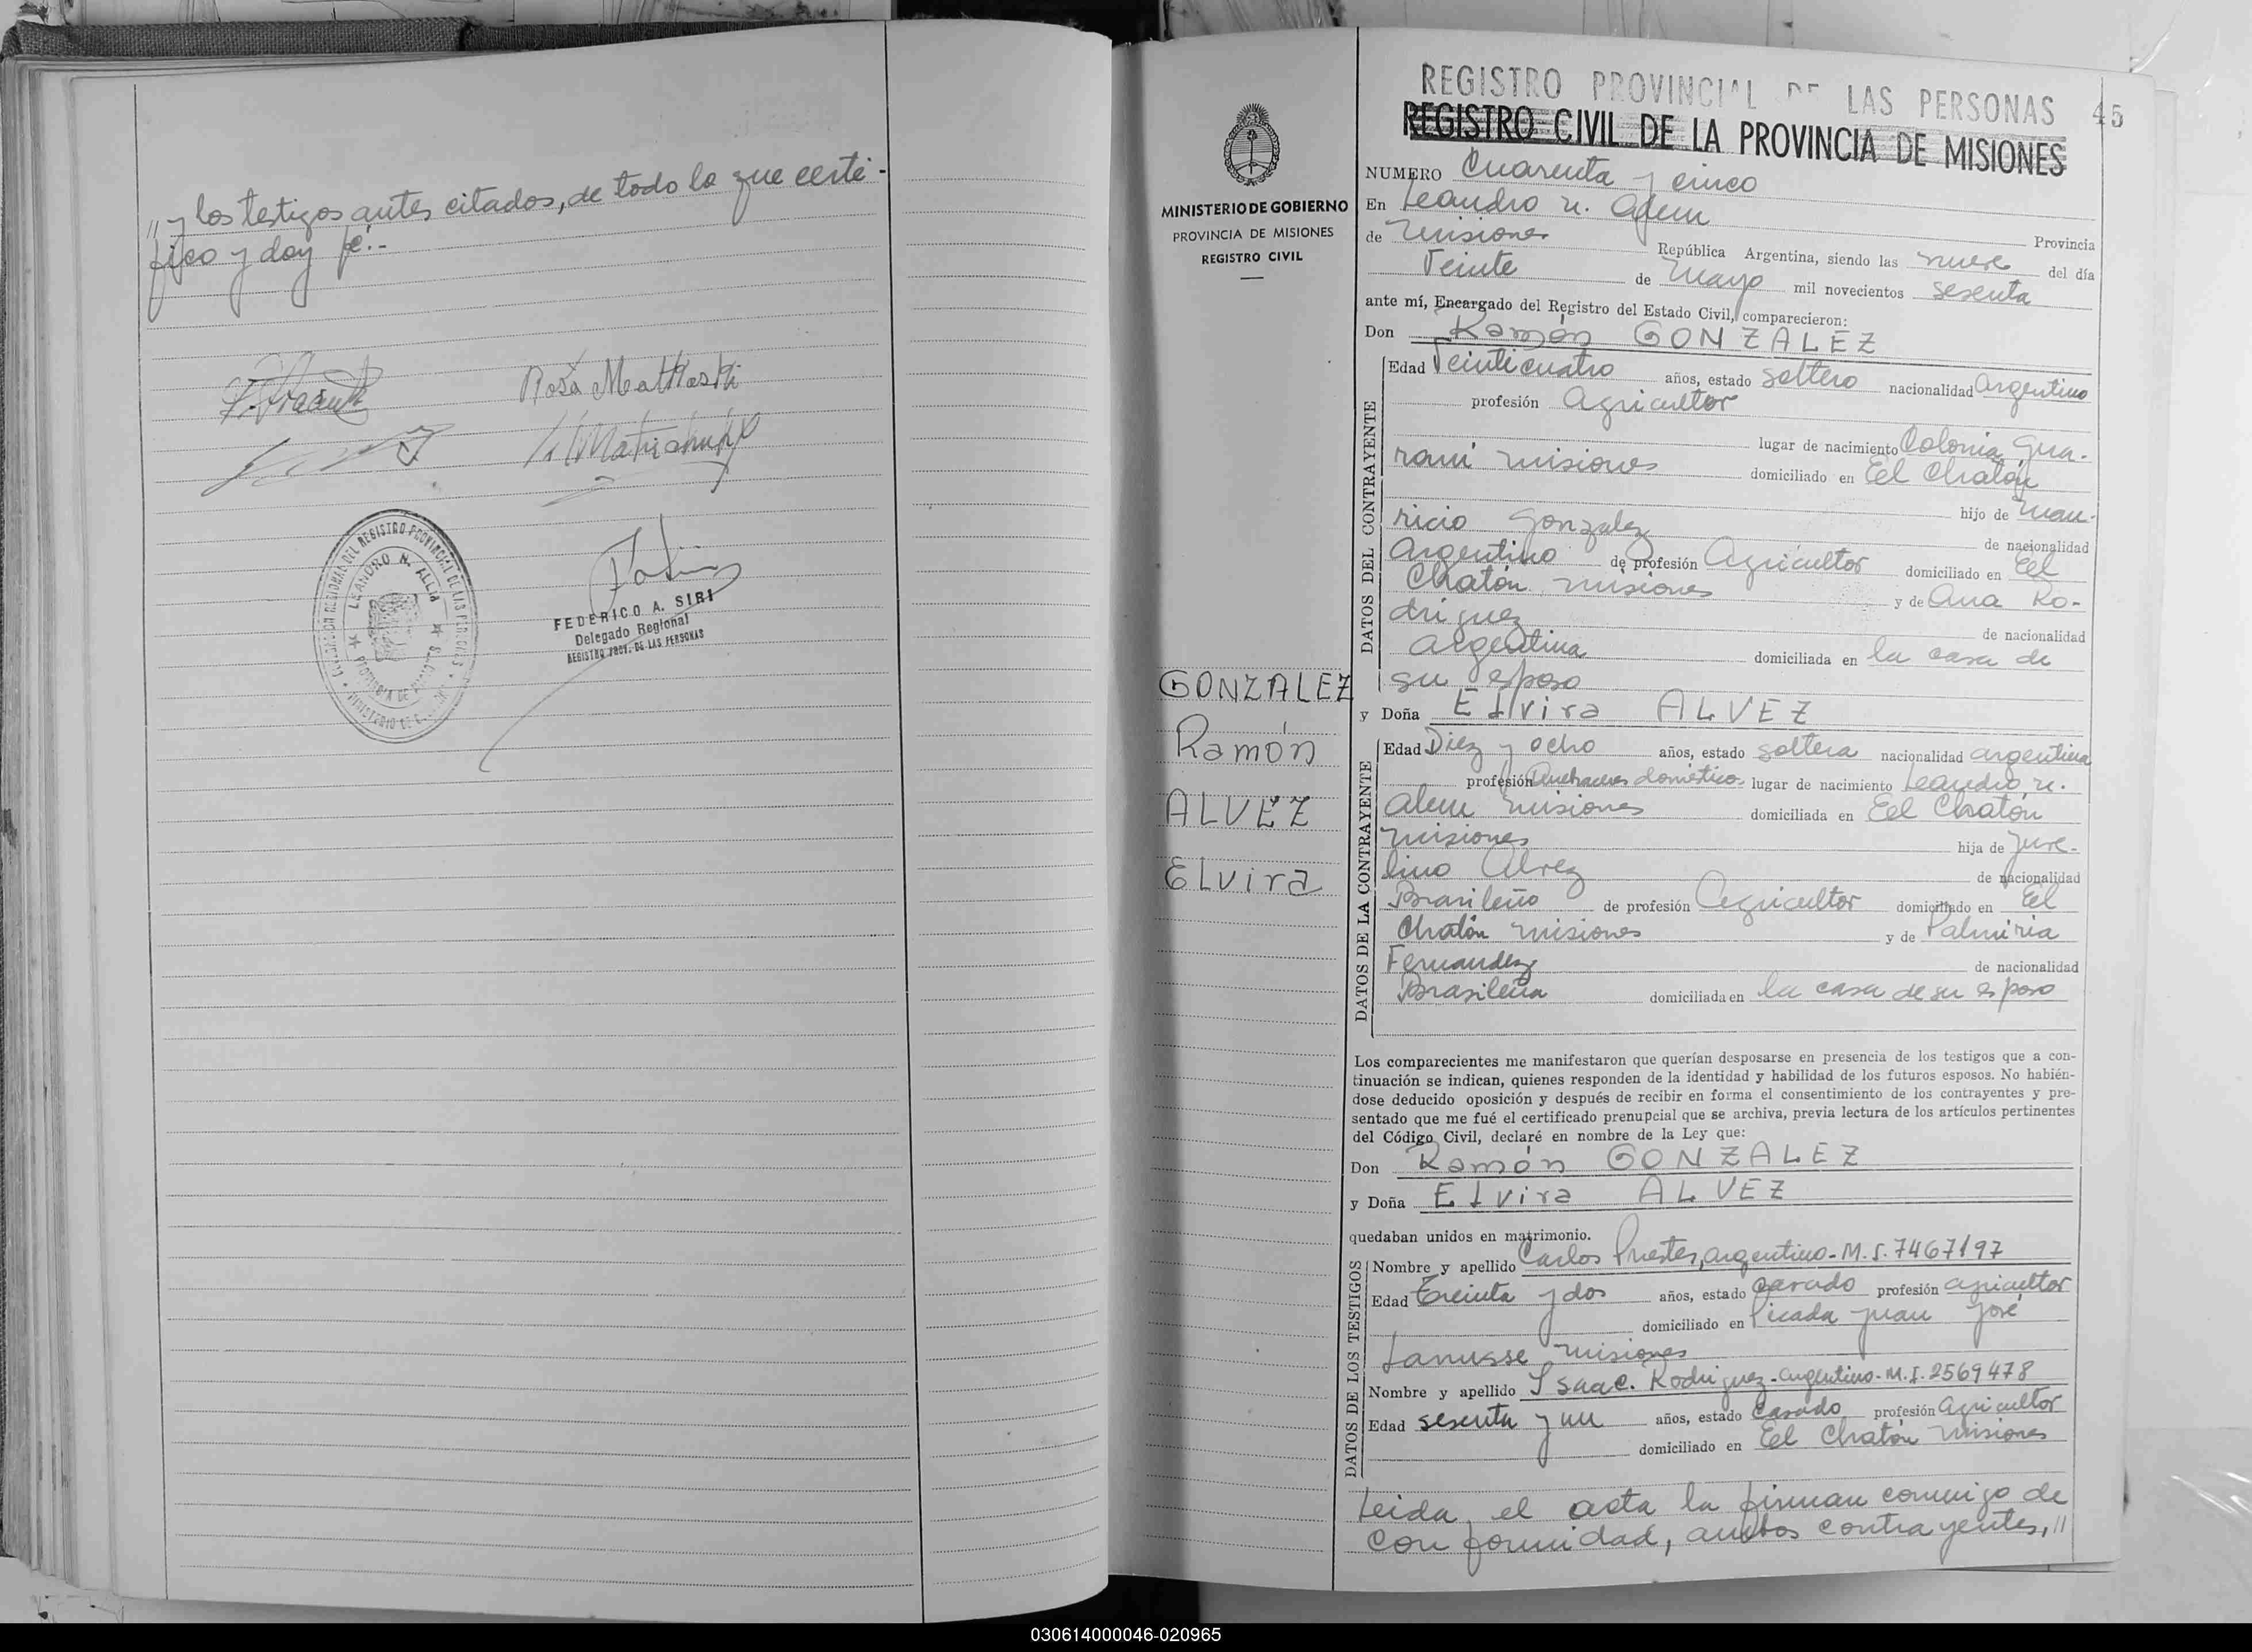 " y los testigos antes citados, de todo lo que certi-
fico y doy fé.-
Rosa
FEDERICO A. SIRI
Delegado Regional
REGISTRO PROV. DE LAS PERSONAS
MINISTERIO DE GOBIERNO
PROVINCIA DE MISIONES
REGISTRO CIVIL
GONZALEZ
Ramón
ALVEZ
ELvira
REGISTRO PROVINCIAL DE LAS PERSONAS 45
REGISTRO CIVIL DE LA PROVINCIA DE MISIONES
NUMERO Cuarenta y cinco
En Leandro N. Alem
Provincia
de Misiones República Argentina, siendo las nueve del día
Veinte de Mayo mil novecientos sesenta
ante mí, Encargado del Registro del Estado Civil, comparecieron:
Don Ramón GONZALEZ
DATOS DEL CONTRAYENTE
Edad Veinticuatro años, estado soltero nacionalidad argentino
profesión Agricultor
lugar de nacimiento Colonia Gua-
raní Misiones domiciliado en El Chatón
hijo de Mau-
ricio Gonzalez de nacionalidad
Argentino de profesión Agricultor domiciliado en El
Chatón Misiones y de Ana Ro-
driguez de nacionalidad
Argentina domiciliada en la casa de
su esposo
y Doña ELvira ALVEZ
DATOS DE LA CONTRAYENTE
Edad Diez y ocho años, estado soltera nacionalidad argentina
profesión Quehaceres doméstico lugar de nacimiento Leandro N.
Alem Misiones domiciliada en El Chatón
Misiones hija de Juve-
lino Alvez de nacionalidad
Brasileño de profesión Agricultor domiciliado en El
Chatón Misiones y de Palmiria
Fernandez de nacionalidad
Brasileña domiciliada en la casa de su esposo
Los comparecientes me manifestaron que querían desposarse en presencia de los testigos que a con-
tinuación se indican, quienes responden de la identidad y habilidad de los futuros esposos. No habién-
dose deducido oposición y después de recibir en forma el consentimiento de los contrayentes y pre-
sentado que me fué el certificado prenupcial que se archiva, previa lectura de los artículos pertinentes
del Código Civil, declaré en nombre de la Ley que:
Don Ramón GONZALEZ
y Doña ELvira ALVEZ
quedaban unidos en matrimonio.
DATOS DE LOS TESTIGOS
Nombre y apellido Carlos Prestes, argentino - M.I. 7467197
Edad Treinta y dos años, estado casado profesión agricultor
domiciliado en Picada Juan José
Lanusse Misiones
Nombre y apellido Isaac. Rodriguez - argentino - M.I. 2569478
Edad sesenta y un años, estado casado profesión Agricultor
domiciliado en El Chatón Misiones
Leida, el acta la firman conmigo de
conformidad, ambos contrayentes, "
030614000046-020965